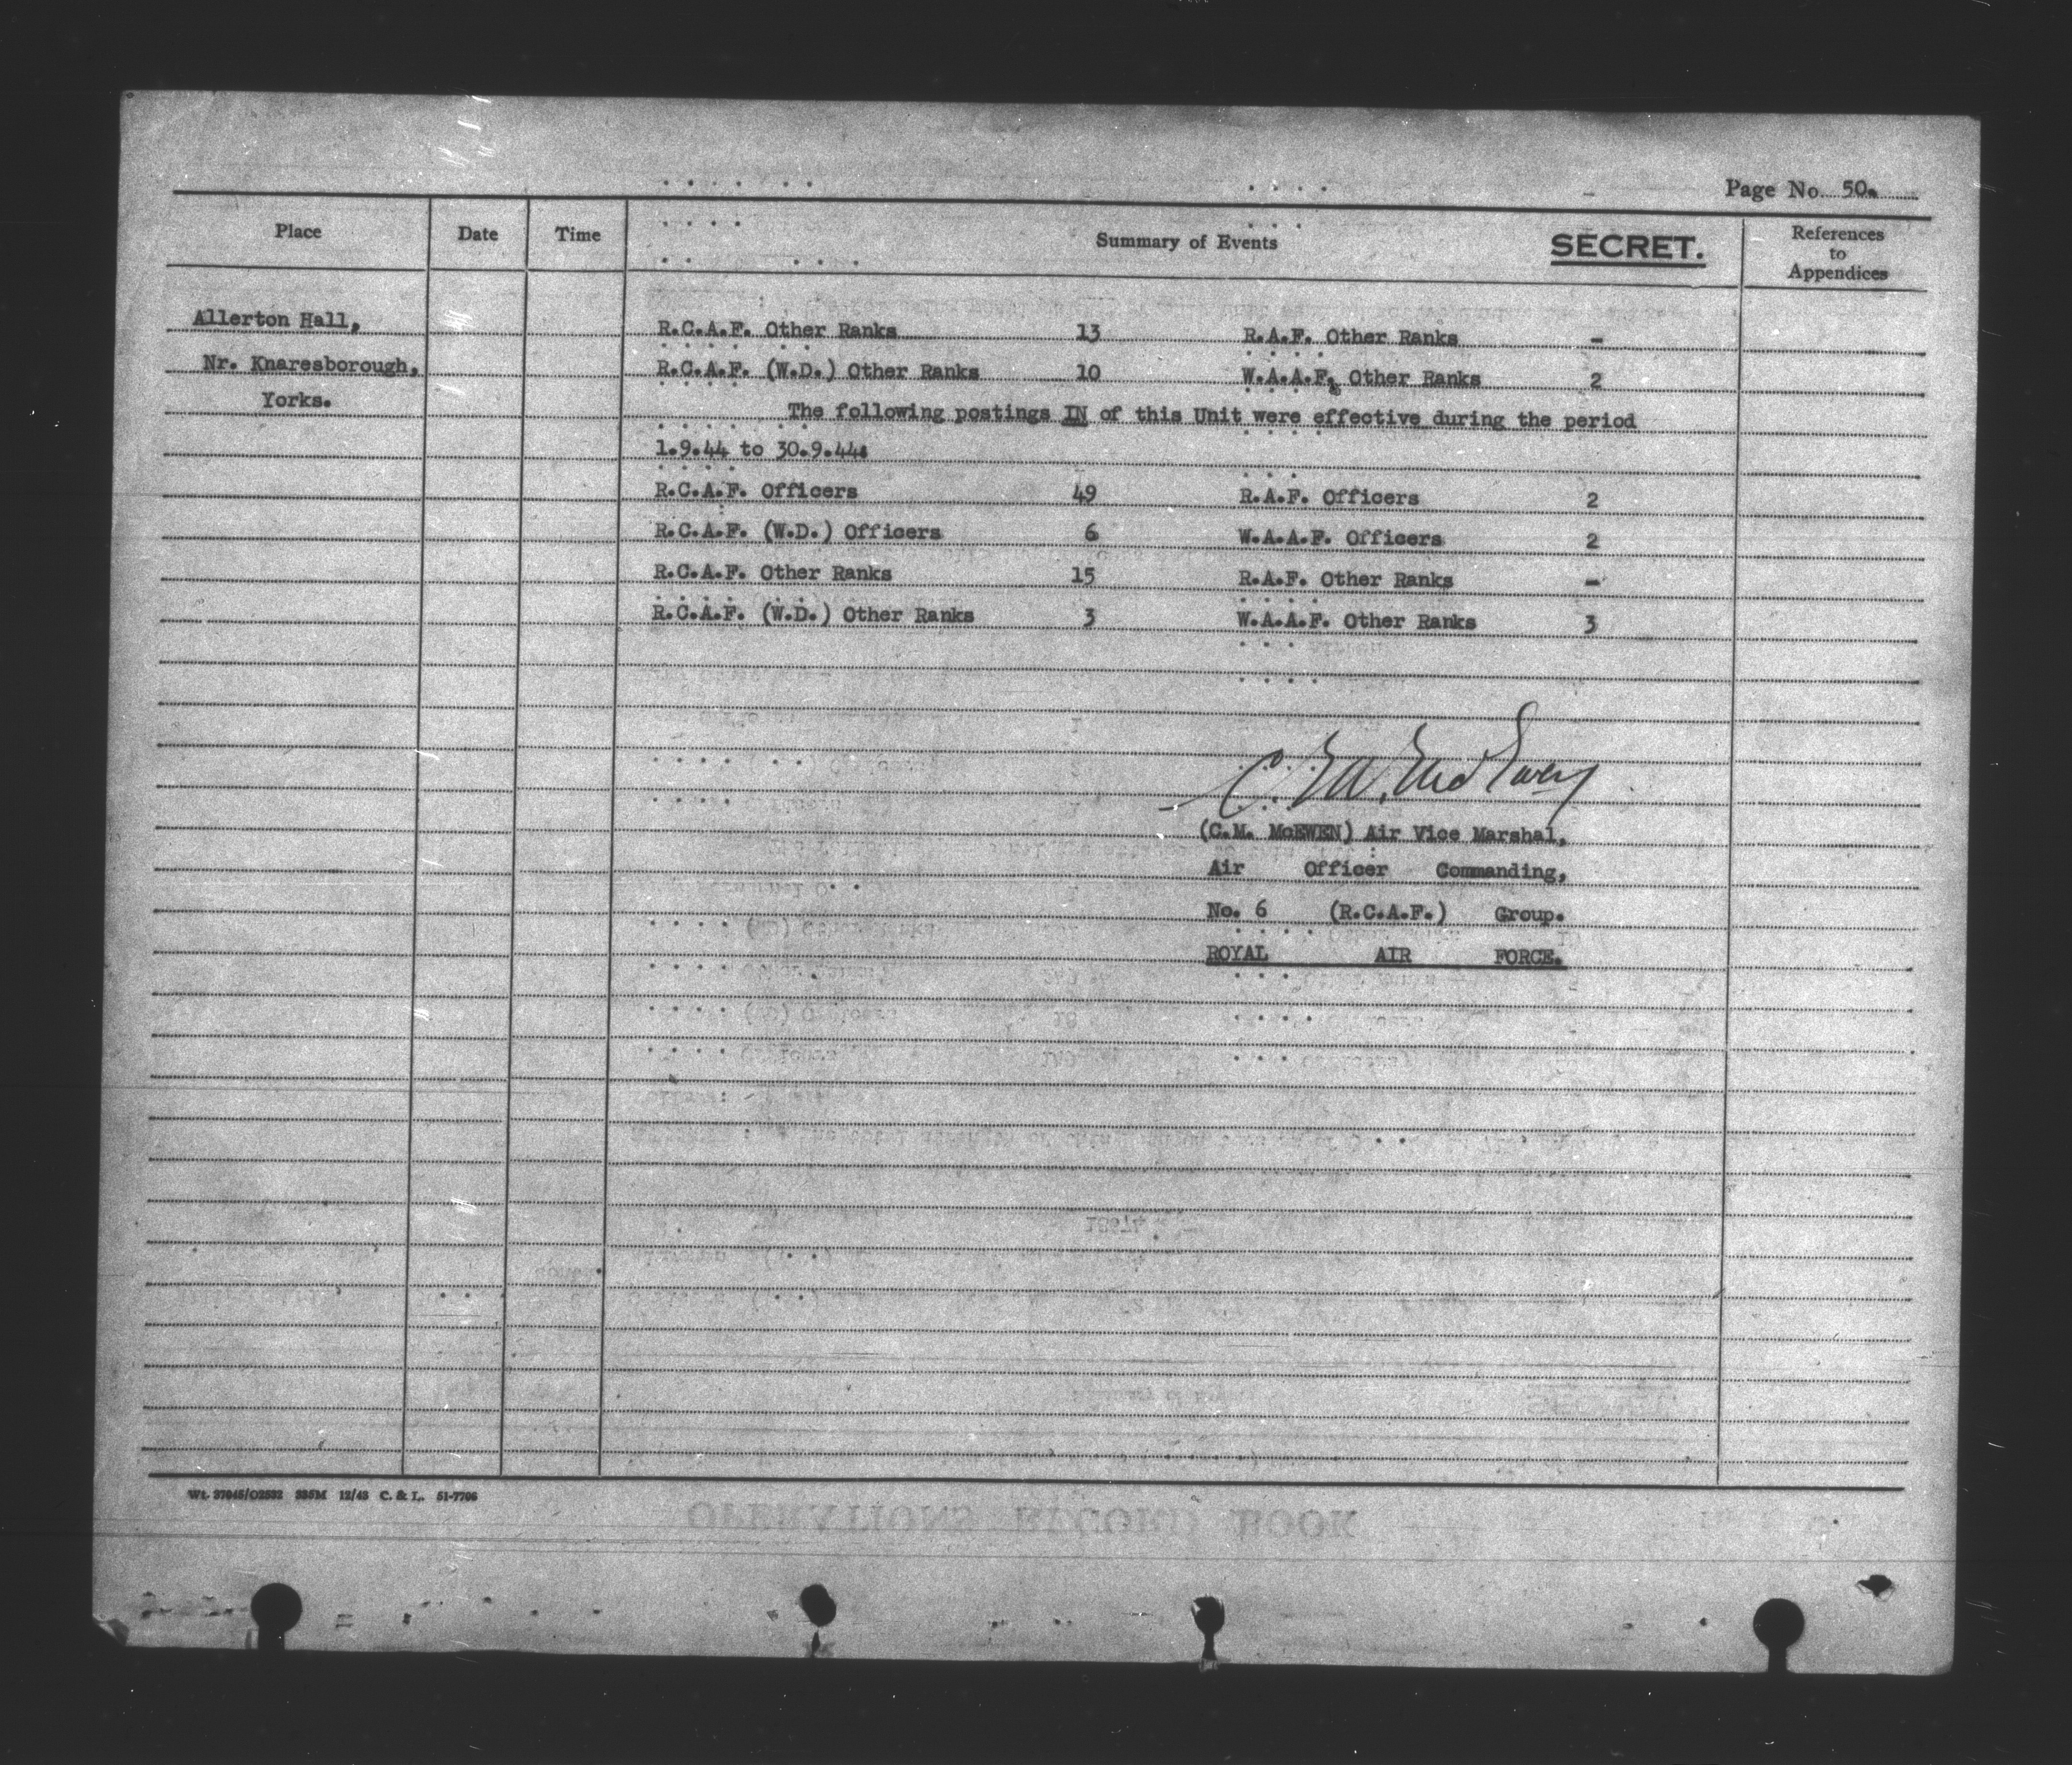 Page No. 50.
Place Date Time Summary of Events SECRET. References to Appendices
Allerton Hall,
Nr. Knaresborough,
Yorks.
R.C.A.F. Other Ranks 13 R.A.F. Other Ranks -
R.C.A.F. (W.D.) Other Ranks 10 W.A.A.F. Other Ranks 2
The following postings IN of this Unit were effective during the period
1.9.44 to 30.9.44:
R.C.A.F. Officers 49 R.A.F. Officers 2
R.C.A.F. (W.D.) Officers 6 W.A.A.F. Officers 2
R.C.A.F. Other Ranks 15 R.A.F. Other Ranks -
R.C.A.F. (W.D.) Other Ranks 3 W.A.A.F. Other Ranks 3
(C.M. McEWEN) Air Vice Marshal,
Air Officer Commanding,
No. 6 (R.C.A.F.) Group.
ROYAL AIR FORCE.
12/43 C. & L. 51-7706